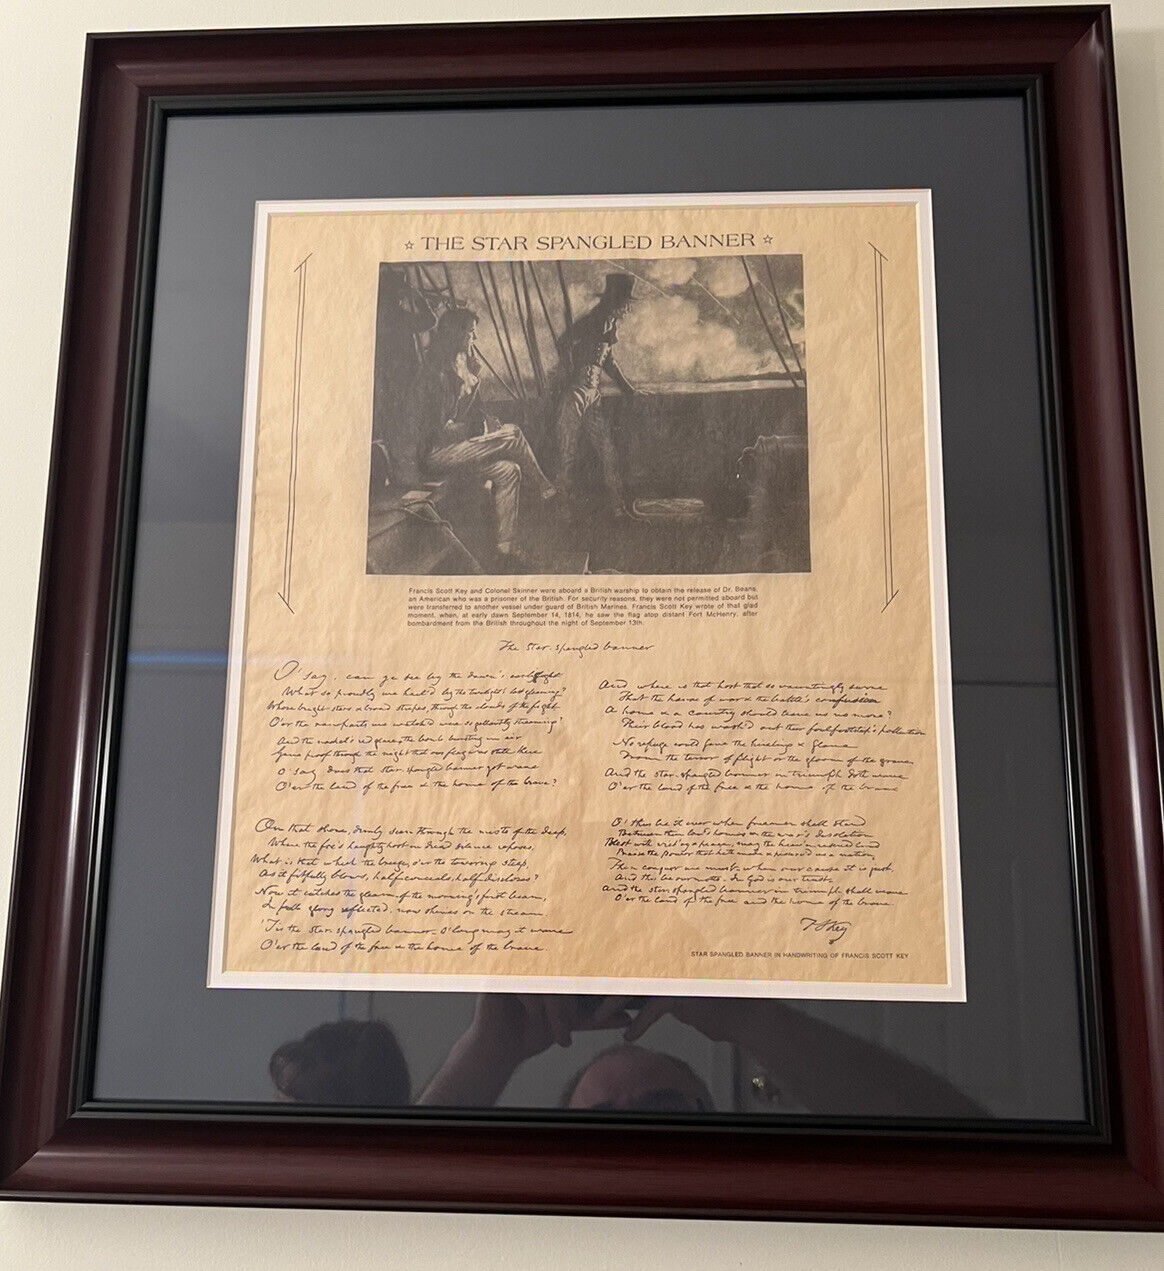 ☆ THE STAR SPANGLED BANNER ☆
Francis Scott Key and Colonel Skinner were aboard a British warship to obtain the release of Dr. Beans,
an American who was a prisoner of the British. For security reasons, they were not permitted aboard but
were transferred to another vessel under guard of British Marines. Francis Scott Key wrote of that glad
moment, when, at early dawn September 14, 1814, he saw the flag atop distant Fort McHenry, after
bombardment from the British throughout the night of September 13th.
The Star-spangled banner
O' say, can ye see by the dawn's
What so proudly we hail'd by the twilight's last gleaming?
Whose bright stars & broad stripes through the clouds of the fight
O'er the ramparts we watch'd were so gallantly streaming?
And the rocket's red glare, the bomb bursting in air
Gave proof through the night that our flag was still there
O' say does that star-spangled banner yet wave
O'er the land of the free & the home of the brave?
On that shore, dimly seen through the mists of the deep,
Where the foe's haughty host in dread silence reposes,
What is that which the breeze, o'er the towering steep,
As it fitfully blows, half conceals, half discloses?
Now it catches the gleam of the morning's first beam,
In full glory reflected, now shines on the stream
'Tis the star-spangled banner, O' long may it wave
O'er the land of the free & the home of the brave.
And where is that host that so vauntingly swore
That the havoc of war & the battle's confusion
A home & a country should leave us no more?
Their blood has wash'd out their foul footstep's pollution
No refuge could save the hireling & slave
From the terror of flight or the gloom of the grave
And the star-spangled banner in triumph doth wave
O'er the land of the free & the home of the brave
O' thus be it ever when freemen shall stand
Between their lov'd homes & the war's desolation
Blest with vict'ry & peace, may the heav'n rescued land
Praise the power that hath made & preserv'd us a nation,
Then conquer we must, when our cause it is just,
And this be our motto- In God is our trust
And the star-spangled banner in triumph shall wave
O'er the land of the free and the home of the brave.
F S Key
STAR SPANGLED BANNER IN HANDWRITING OF FRANCIS SCOTT KEY